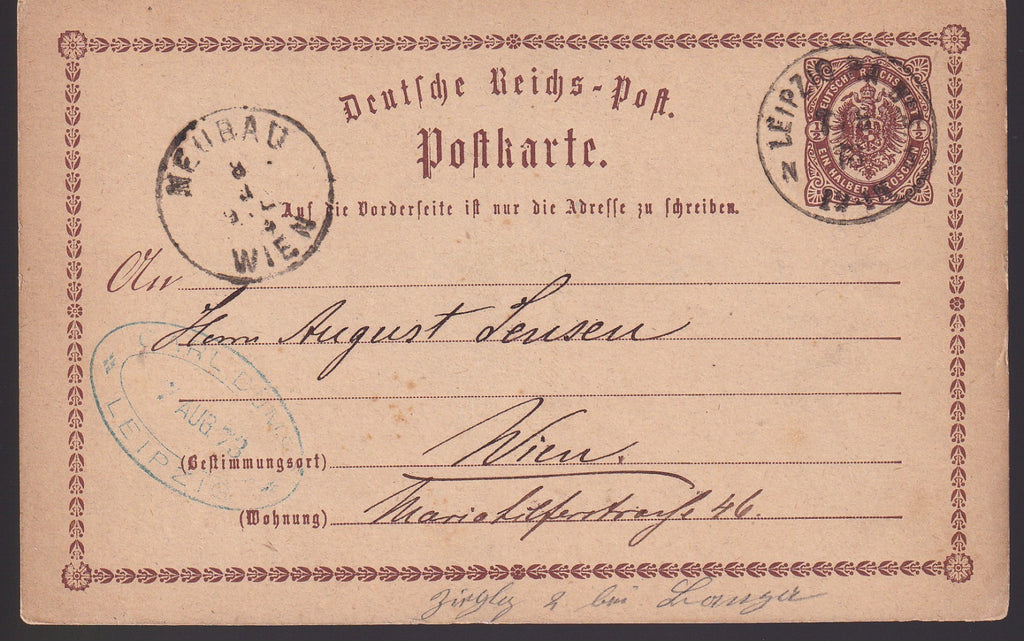 Deutsche Reichs-Post.
Postkarte.
Auf die Vorderseite ist nur die Adresse zu schreiben.
DEUTSCHE REICHS-POST
½ ½
EIN HALBER GROSCHEN
LEIPZIG
NEUBAU
WIEN
An
Herrn August Jensen
LEIPZIG
AUG 73
(Bestimmungsort) Wien.
(Wohnung) Mariahilferstrasse 46.
2 bei